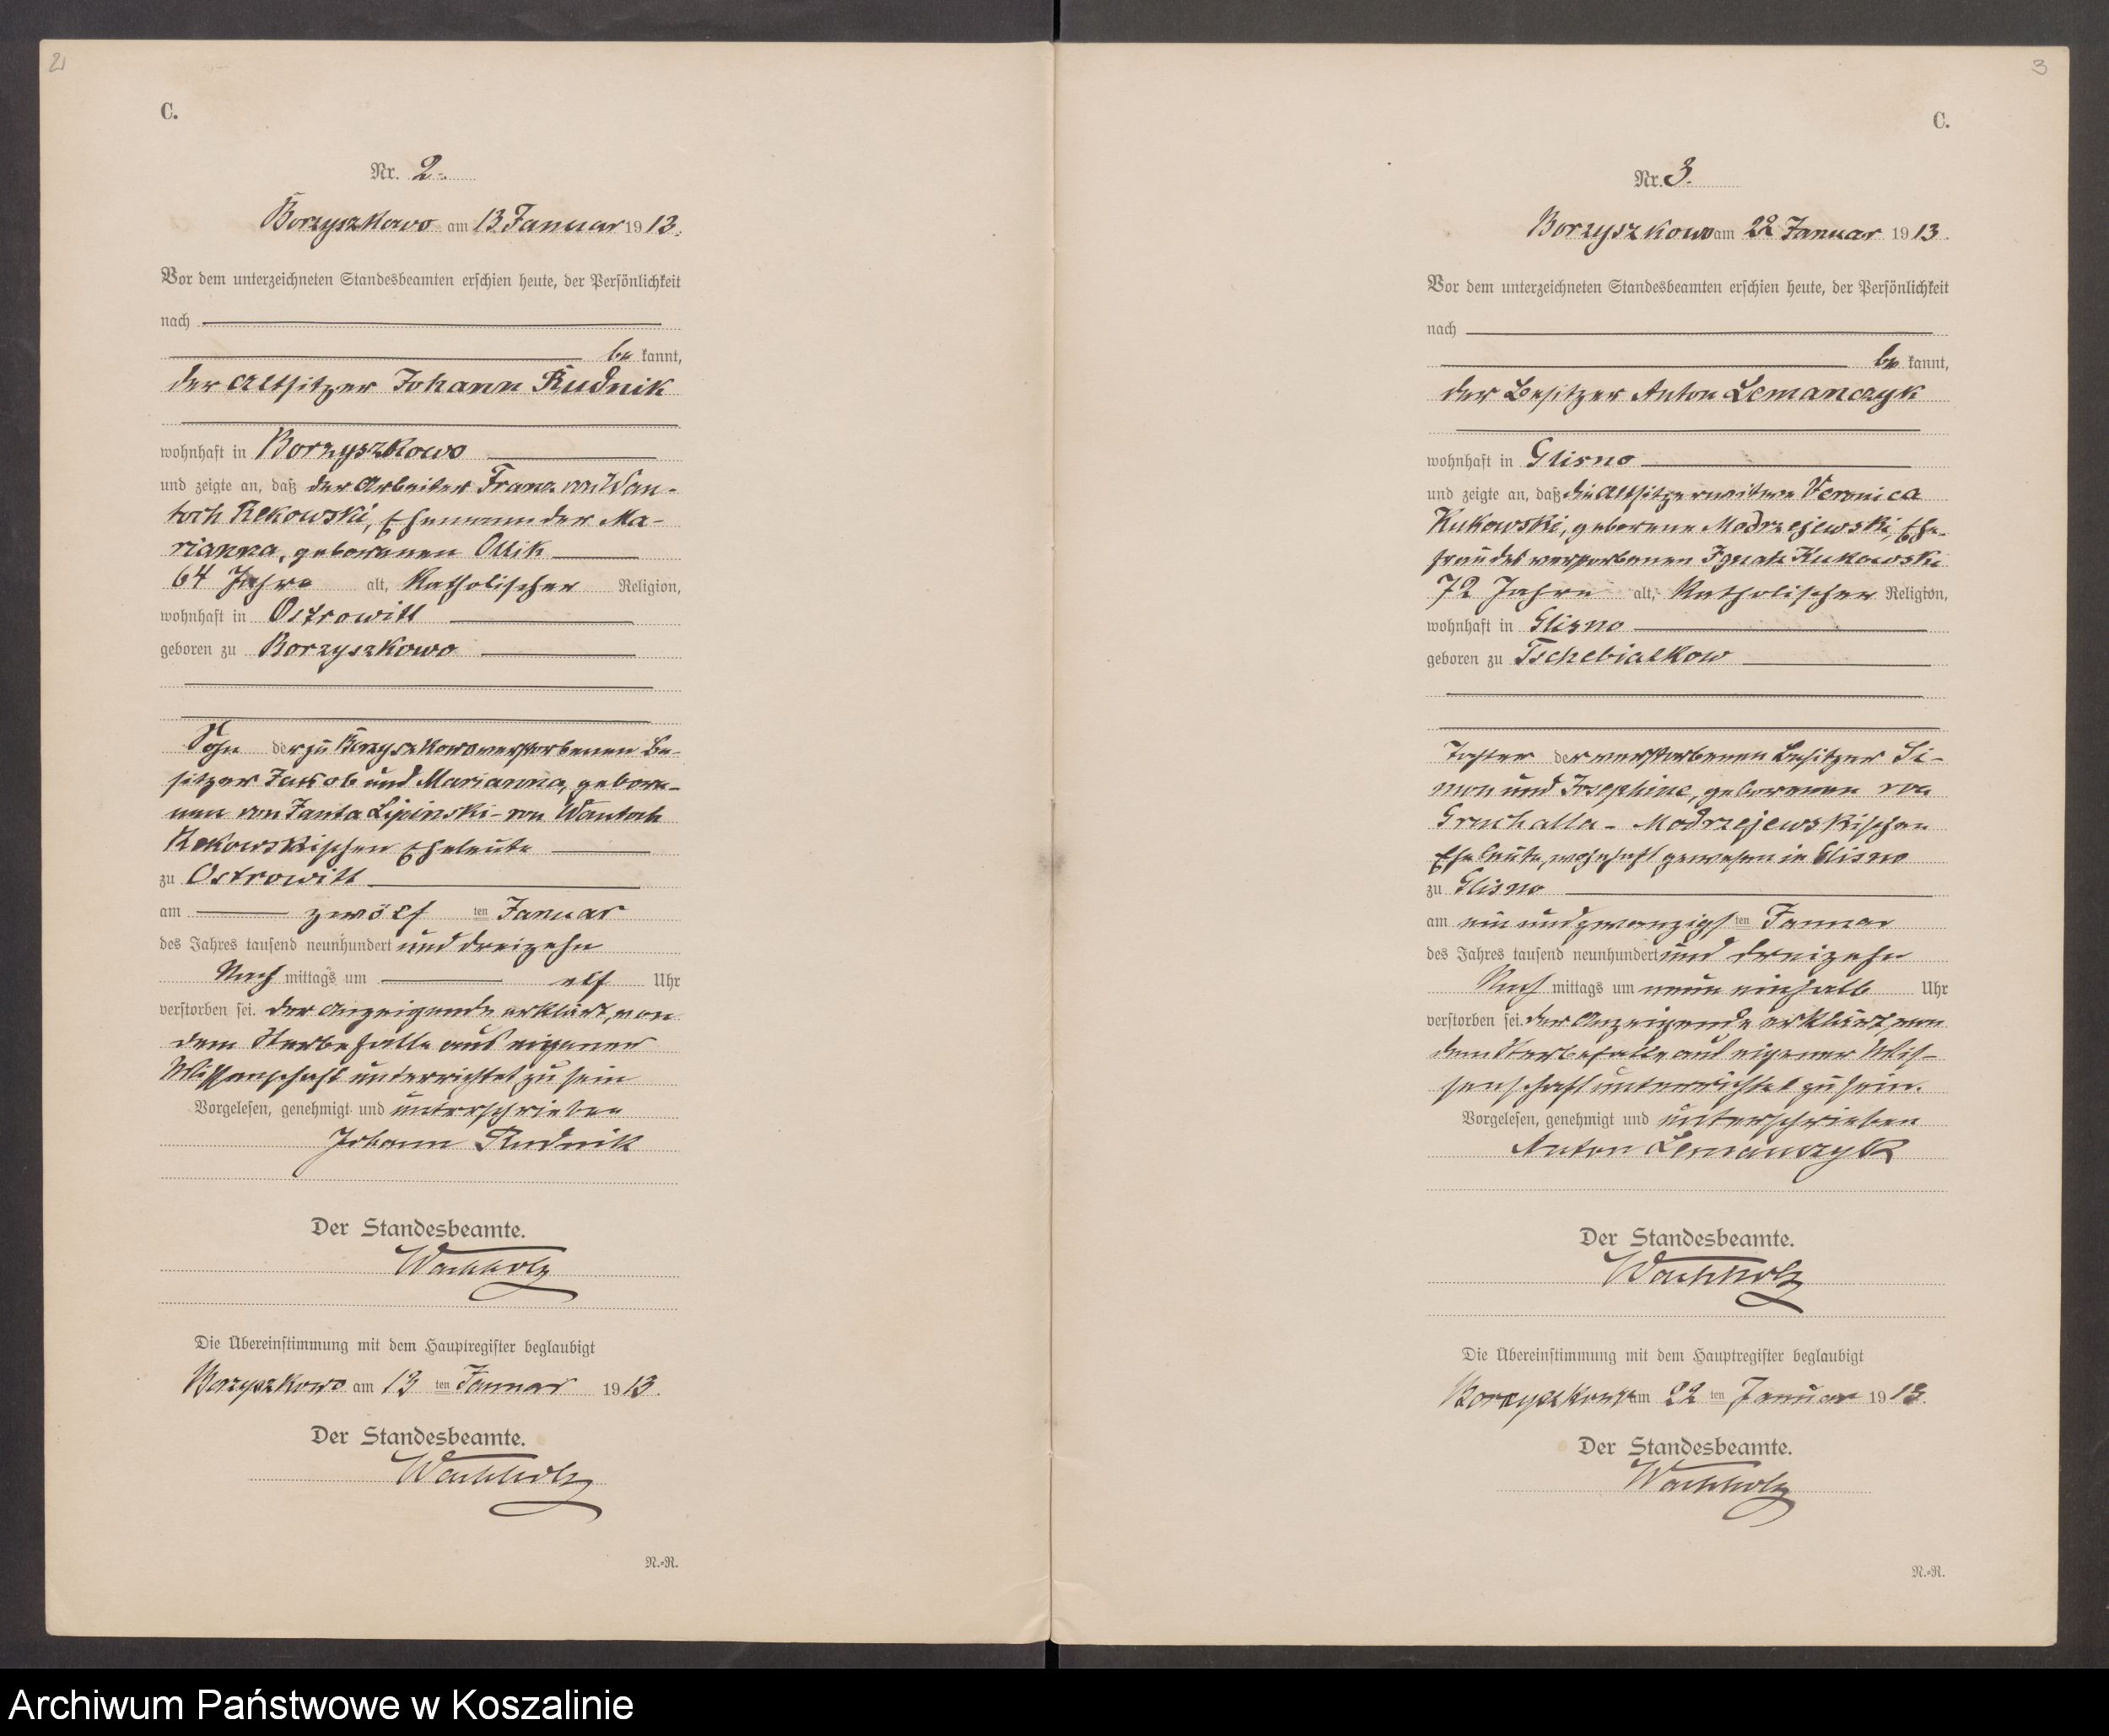 2
C.
Nr. 2.
Borzyszkowo am 13 Januar 1913.
Vor dem unterzeichneten Standesbeamten erschien heute, der Persönlichkeit
nach
be kannt,
der Altsitzer Johann Rudnik
wohnhaft in Borzyszkowo
und zeigte an, daß der Arbeiter Franz von Wan-
toch Rekowski, Ehemann der Ma-
rianna, geborenen Ollik
64 Jahre alt, katholischer Religion,
wohnhaft in Ostrowitt
geboren zu Borzyszkowo
Sohn der zu Borzyszkowo verstorbenen Be-
sitzer Jakob und Marianna, gebore-
nen von Janta Lipinski - von Wantoch
Rekowskischen Eheleute
zu Ostrowitt
am zwölf ten Januar
des Jahres tausend neunhundert und dreizehn
Nach mittags um elf Uhr
verstorben sei. Der Anzeigende erklärt, von
dem Sterbefalle aus eigener
Wissenschaft unterrichtet zu sein
Vorgelesen, genehmigt und unterschrieben
Johann Rudnik
Der Standesbeamte.
Wachholz
Die Übereinstimmung mit dem Hauptregister beglaubigt
Borzyszkowo am 13 ten Januar 1913.
Der Standesbeamte.
Wachholz
N.-R.
3
C.
Nr. 3.
Borzyszkowo am 22 Januar 1913.
Vor dem unterzeichneten Standesbeamten erschien heute, der Persönlichkeit
nach
be kannt,
der Besitzer Anton Lemanczyk
wohnhaft in Glisno
und zeigte an, daß die Altsitzerwitwe Veronica
Kukowski, geborene Modrzejewski, Ehe-
frau des verstorbenen Ignatz Kukowski
72 Jahre alt, katholischer Religion,
wohnhaft in Glisno
geboren zu Tschebiatkow
Tochter der verstorbenen Besitzer Si-
mon und Josephine, geborenen von
Gruchalla - Modrzejewskischen
Eheleute, wohnhaft gewesen in Glisno
zu Glisno
am ein und zwanzigs ten Januar
des Jahres tausend neunhundert und dreizehn
Nach mittags um neun einhalb Uhr
verstorben sei. Der Anzeigende erklärt, von
dem Sterbefalle aus eigener Wis-
senschaft unterrichtet zu sein.
Vorgelesen, genehmigt und unterschrieben
Anton Lemanczyk
Der Standesbeamte.
Wachholz
Die Übereinstimmung mit dem Hauptregister beglaubigt
Borzyszkowo am 22 ten Januar 1913.
Der Standesbeamte.
Wachholz
N.-R.
Archiwum Państwowe w Koszalinie